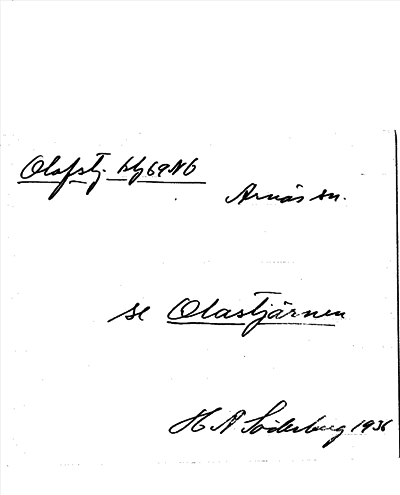 Olofstj. blj 69 NO
Arnäs sn.
se Olastjärnen
H A Söderberg 1936